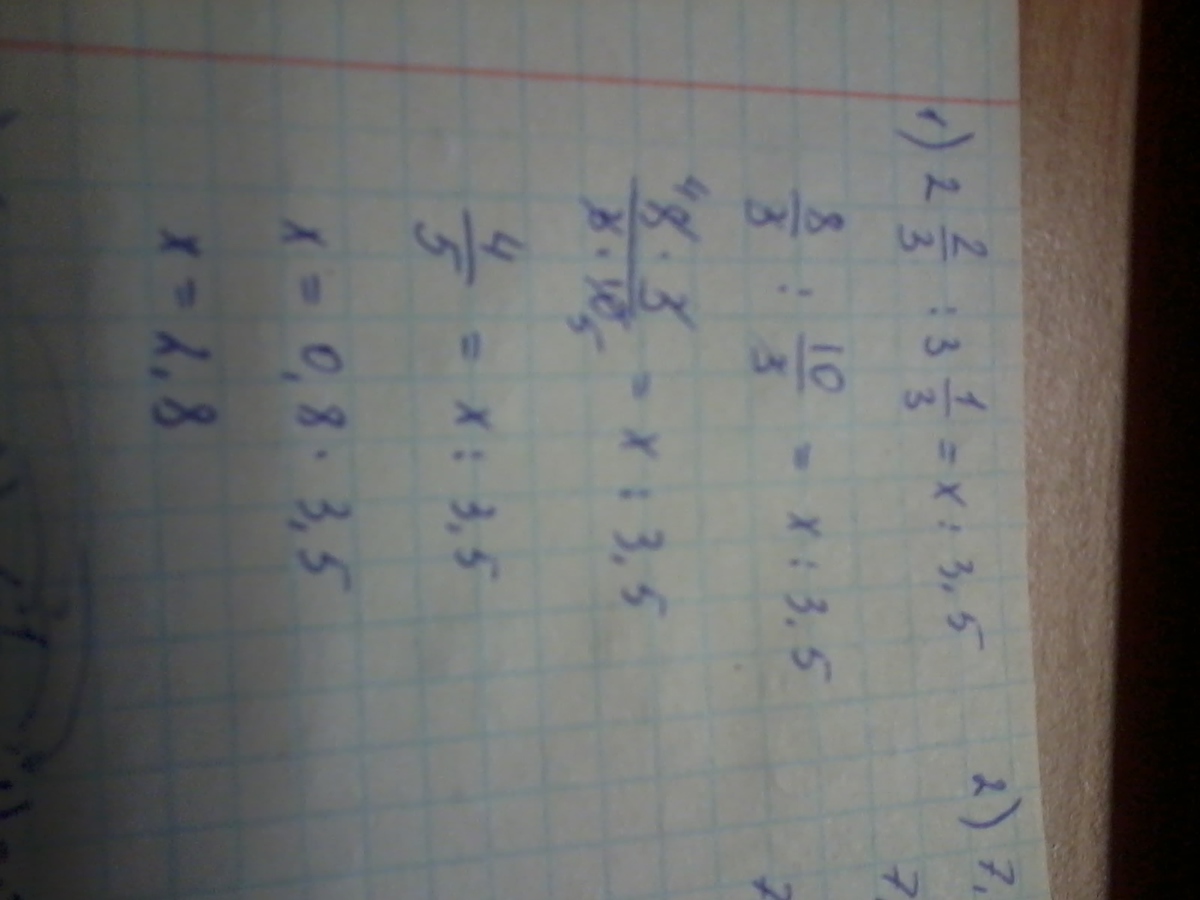 1) 2 2/3 : 3 1/3 = x : 3,5
8/3 : 10/3 = x : 3,5
4
8 · 3 / 3 · 10 = x : 3,5
5
4/5 = x : 3,5
x = 0,8 · 3,5
x = 2,8
2) 7,
7
7